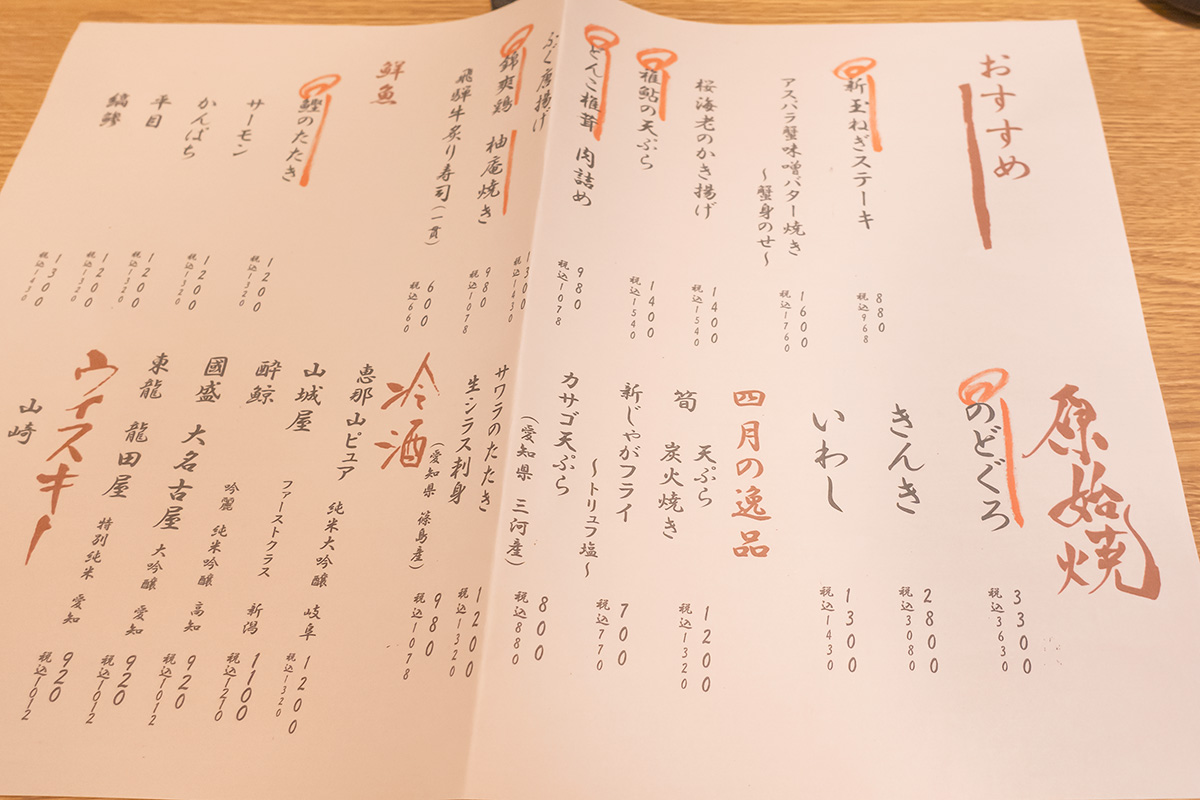 おすすめ
新玉ねぎステーキ
880
税込968
アスパラ蟹味噌バター焼き
～蟹身のせ～
1600
税込1760
桜海老のかき揚げ
1400
税込1540
稚鮎の天ぷら
1400
税込1540
どんこ椎茸 肉詰め
980
税込1078
ふぐ唐揚げ
1300
税込1430
錦爽鶏 柚庵焼き
980
税込1078
飛騨牛炙り寿司(一貫)
600
税込660
鮮魚
鰹のたたき
サーモン
1200
税込1320
かんぱち
1200
税込1320
平目
1200
税込1320
縞鯵
1300
税込1430
原始焼
のどぐろ
3300
税込3630
きんき
2800
税込3080
いわし
1300
税込1430
四月の逸品
筍 天ぷら
炭火焼き
1200
税込1320
新じゃがフライ
～トリュフ塩～
700
税込770
カサゴ天ぷら
(愛知県 三河産)
800
税込880
サワラのたたき
1200
税込1320
生シラス刺身
(愛知県 篠島産)
980
税込1078
冷酒
恵那山ピュア 純米大吟醸 岐阜
1200
税込1320
山城屋 ファーストクラス 新潟
1100
税込1210
酔鯨 吟麗 純米吟醸 高知
920
税込1012
國盛 大名古屋 大吟醸 愛知
920
税込1012
東龍 龍田屋 特別純米 愛知
920
税込1012
ウイスキー
山崎